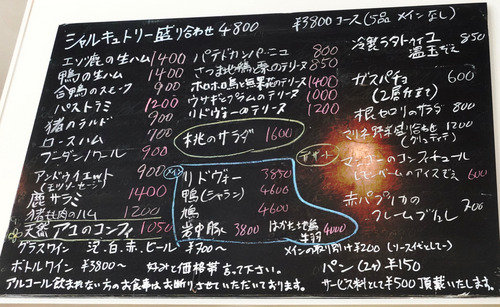 シャルキュトリー盛り合わせ 4800
エゾ鹿の生ハム 1400
鴨の生ハム 1400
合鴨のスモーク 900
パストラミ 1200
猪のテリーヌ 900
ロースハム 700
ブーダンノワール 900
アンドゥイエット 900
(エゾソーセージ)
鹿サラミ 1400
猪もも肉のハム 1200
天然アユのコンフィ 1050
パテドカンパーニュ 800
さつま地鶏と栗のテリーヌ 850
ホロホロ鳥と無花果のテリーヌ 1400
ウサギとプラムのテリーヌ 1000
リドヴォーのテリーヌ 1200
桃のサラダ 1600
メイン
リドヴォー 3850
鴨(シャラン) 4600
鳩 4600
岩中豚 3800
はかた地鶏 4000
¥3800コース(5品 メインなし)
冷製ラタトゥイユ 850
温玉のせ
ガスパチョ 600
(2層仕立て)
根セロリのサラダ 800
マリネ野菜盛り合わせ 1200
(クリュディテ)
デザート
マンゴーのコンフィチュール
レモンバームのアイス添え 600
赤パプリカの
クレームブリュレ 700
グラスワイン 泡、白、赤、ビール ¥700〜
メインの取り分け¥200(ソース代として)
ボトルワイン ¥3800〜 好みと価格帯言って下さい。
パン(2ヶ)¥150
アルコール飲まれない方のお食事はお断りさせていただいております。
サービス料として¥500頂戴いたします。